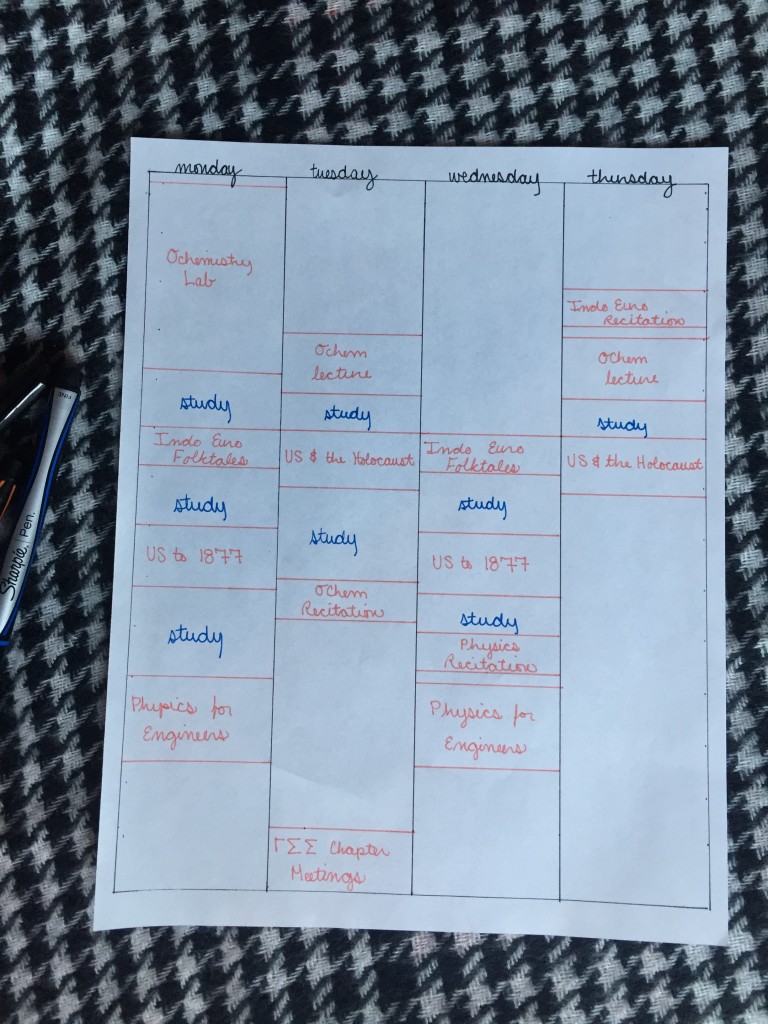 monday
Ochemistry
Lab
study
Indo Euro
Folktales
study
US to 1877
study
Physics for
Engineers
tuesday
Ochem
lecture
study
US & the Holocaust
study
Ochem
Recitation
ΓΣΣ Chapter
Meetings
wednesday
Indo Euro
Folktales
study
US to 1877
study
Physics
Recitation
Physics for
Engineers
thursday
Indo Euro
Recitation
Ochem
lecture
study
US & the Holocaust
Sharpie PEN.
FINE